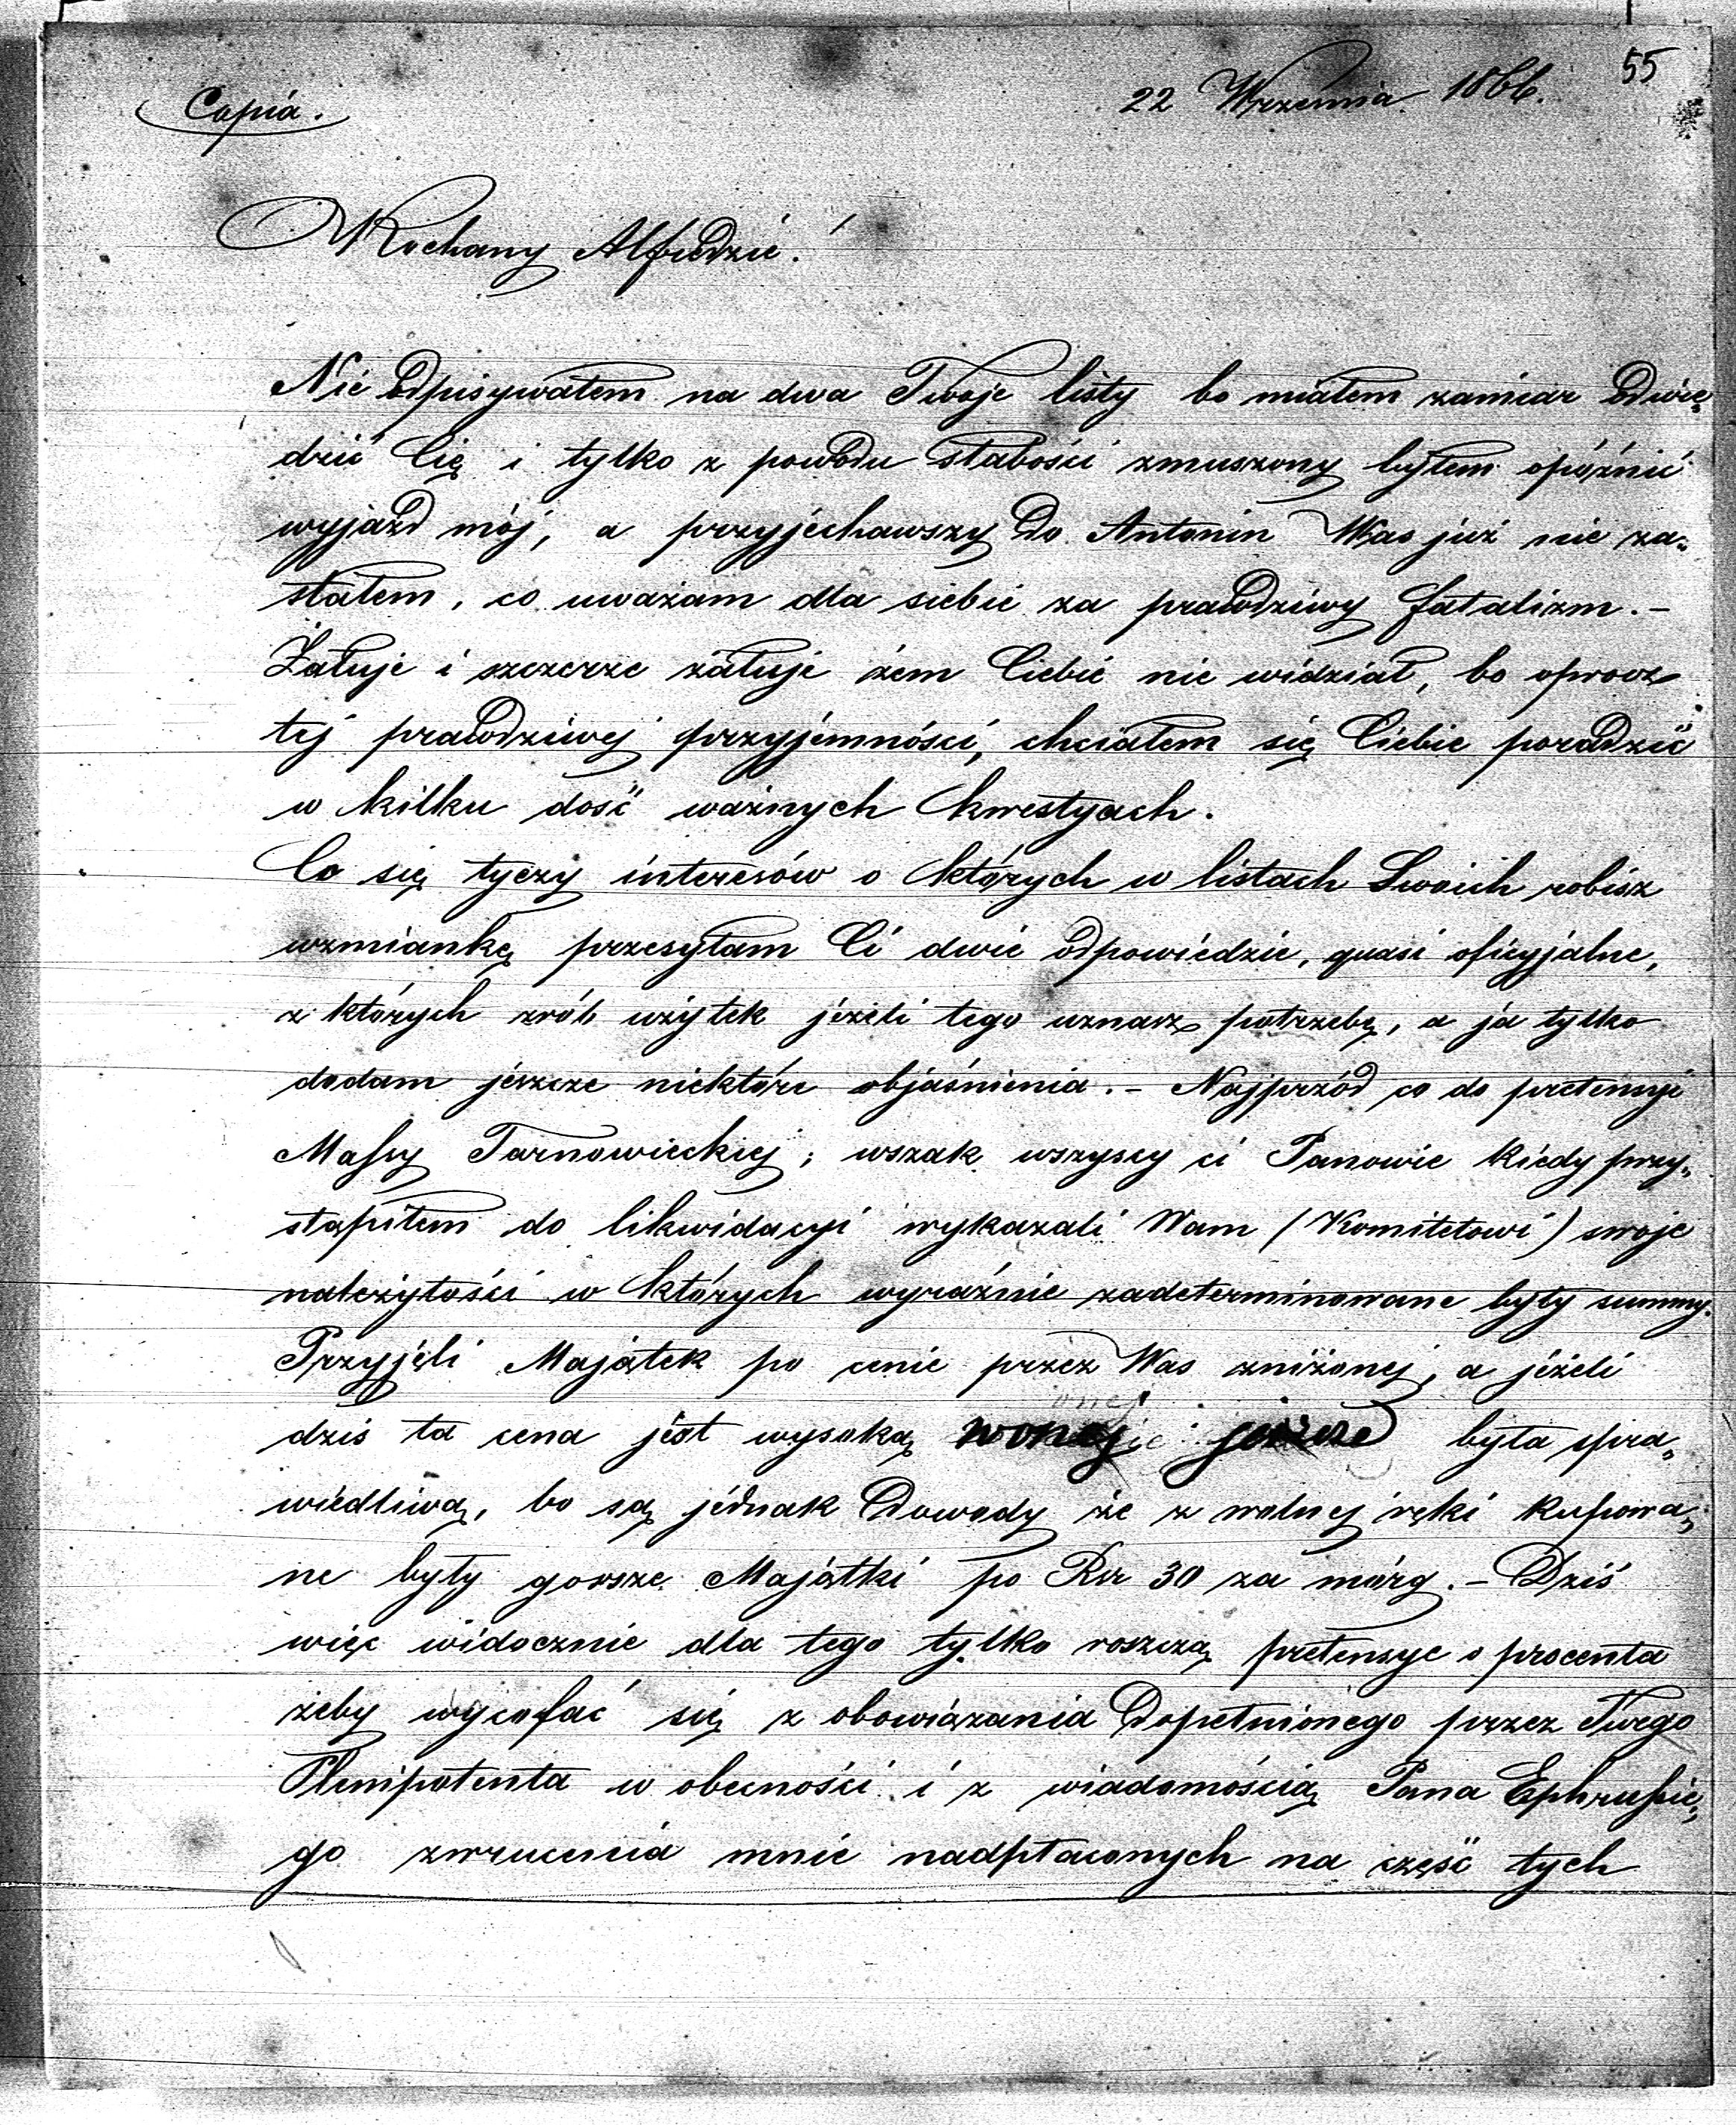 55
Copia. 22 Września 1866.
Kochany Alfredzie!
Nie odpisywałem na dwa Twoje listy bo miałem zamiar odwie-
dzić Cię i tylko z powodu słabości zmuszony byłem opóźnić
wyjazd mój, a przyjechawszy do Antonin Was już nie za-
stałem, co uważam dla siebie za prawdziwy fatalizm.–
Żałuje i szczerze żałuje żem Ciebie nie widział, bo oprócz
tej prawdziwej przyjemności, chciałem się Ciebie poradzić
w kilku dość ważnych kwestyach.
Co się tyczy interesów o których w listach Swoich robisz
wzmiankę przesyłam Ci dwie odpowiedzie, quasi oficyjalne,
z których zrób użytek jeżeli tego uznasz potrzebę, a ja tylko
dodam jeszcze niektóre objaśnienia.– Najprzód co do pretensyi
Massy Tarnowieckiej; wszak wszyscy ci Panowie kiedy przy-
stąpiłem do likwidacyi wykazali Wam (Komitetowi) swoje
należytości w których wyraźnie zadeterminowane były summy.
Przyjęli Majątek po cenie przez Was zniżonej, a jeżeli
dziś ta cena jest wysoką była spra-
wiedliwą, bo są jednak dowody że z wolnej ręki kupowa-
ne były gorsze Majątki po Rsr 30 za mórg.– Dziś
więc widocznie dla tego tylko roszczą pretensye o procenta
żeby wycofać się z obowiązania dopełnionego przez Twego
Plenipotenta w obecności i z wiadomością Pana Ephrussie-
go zwrucenia mnie nadpłaconych na część tych